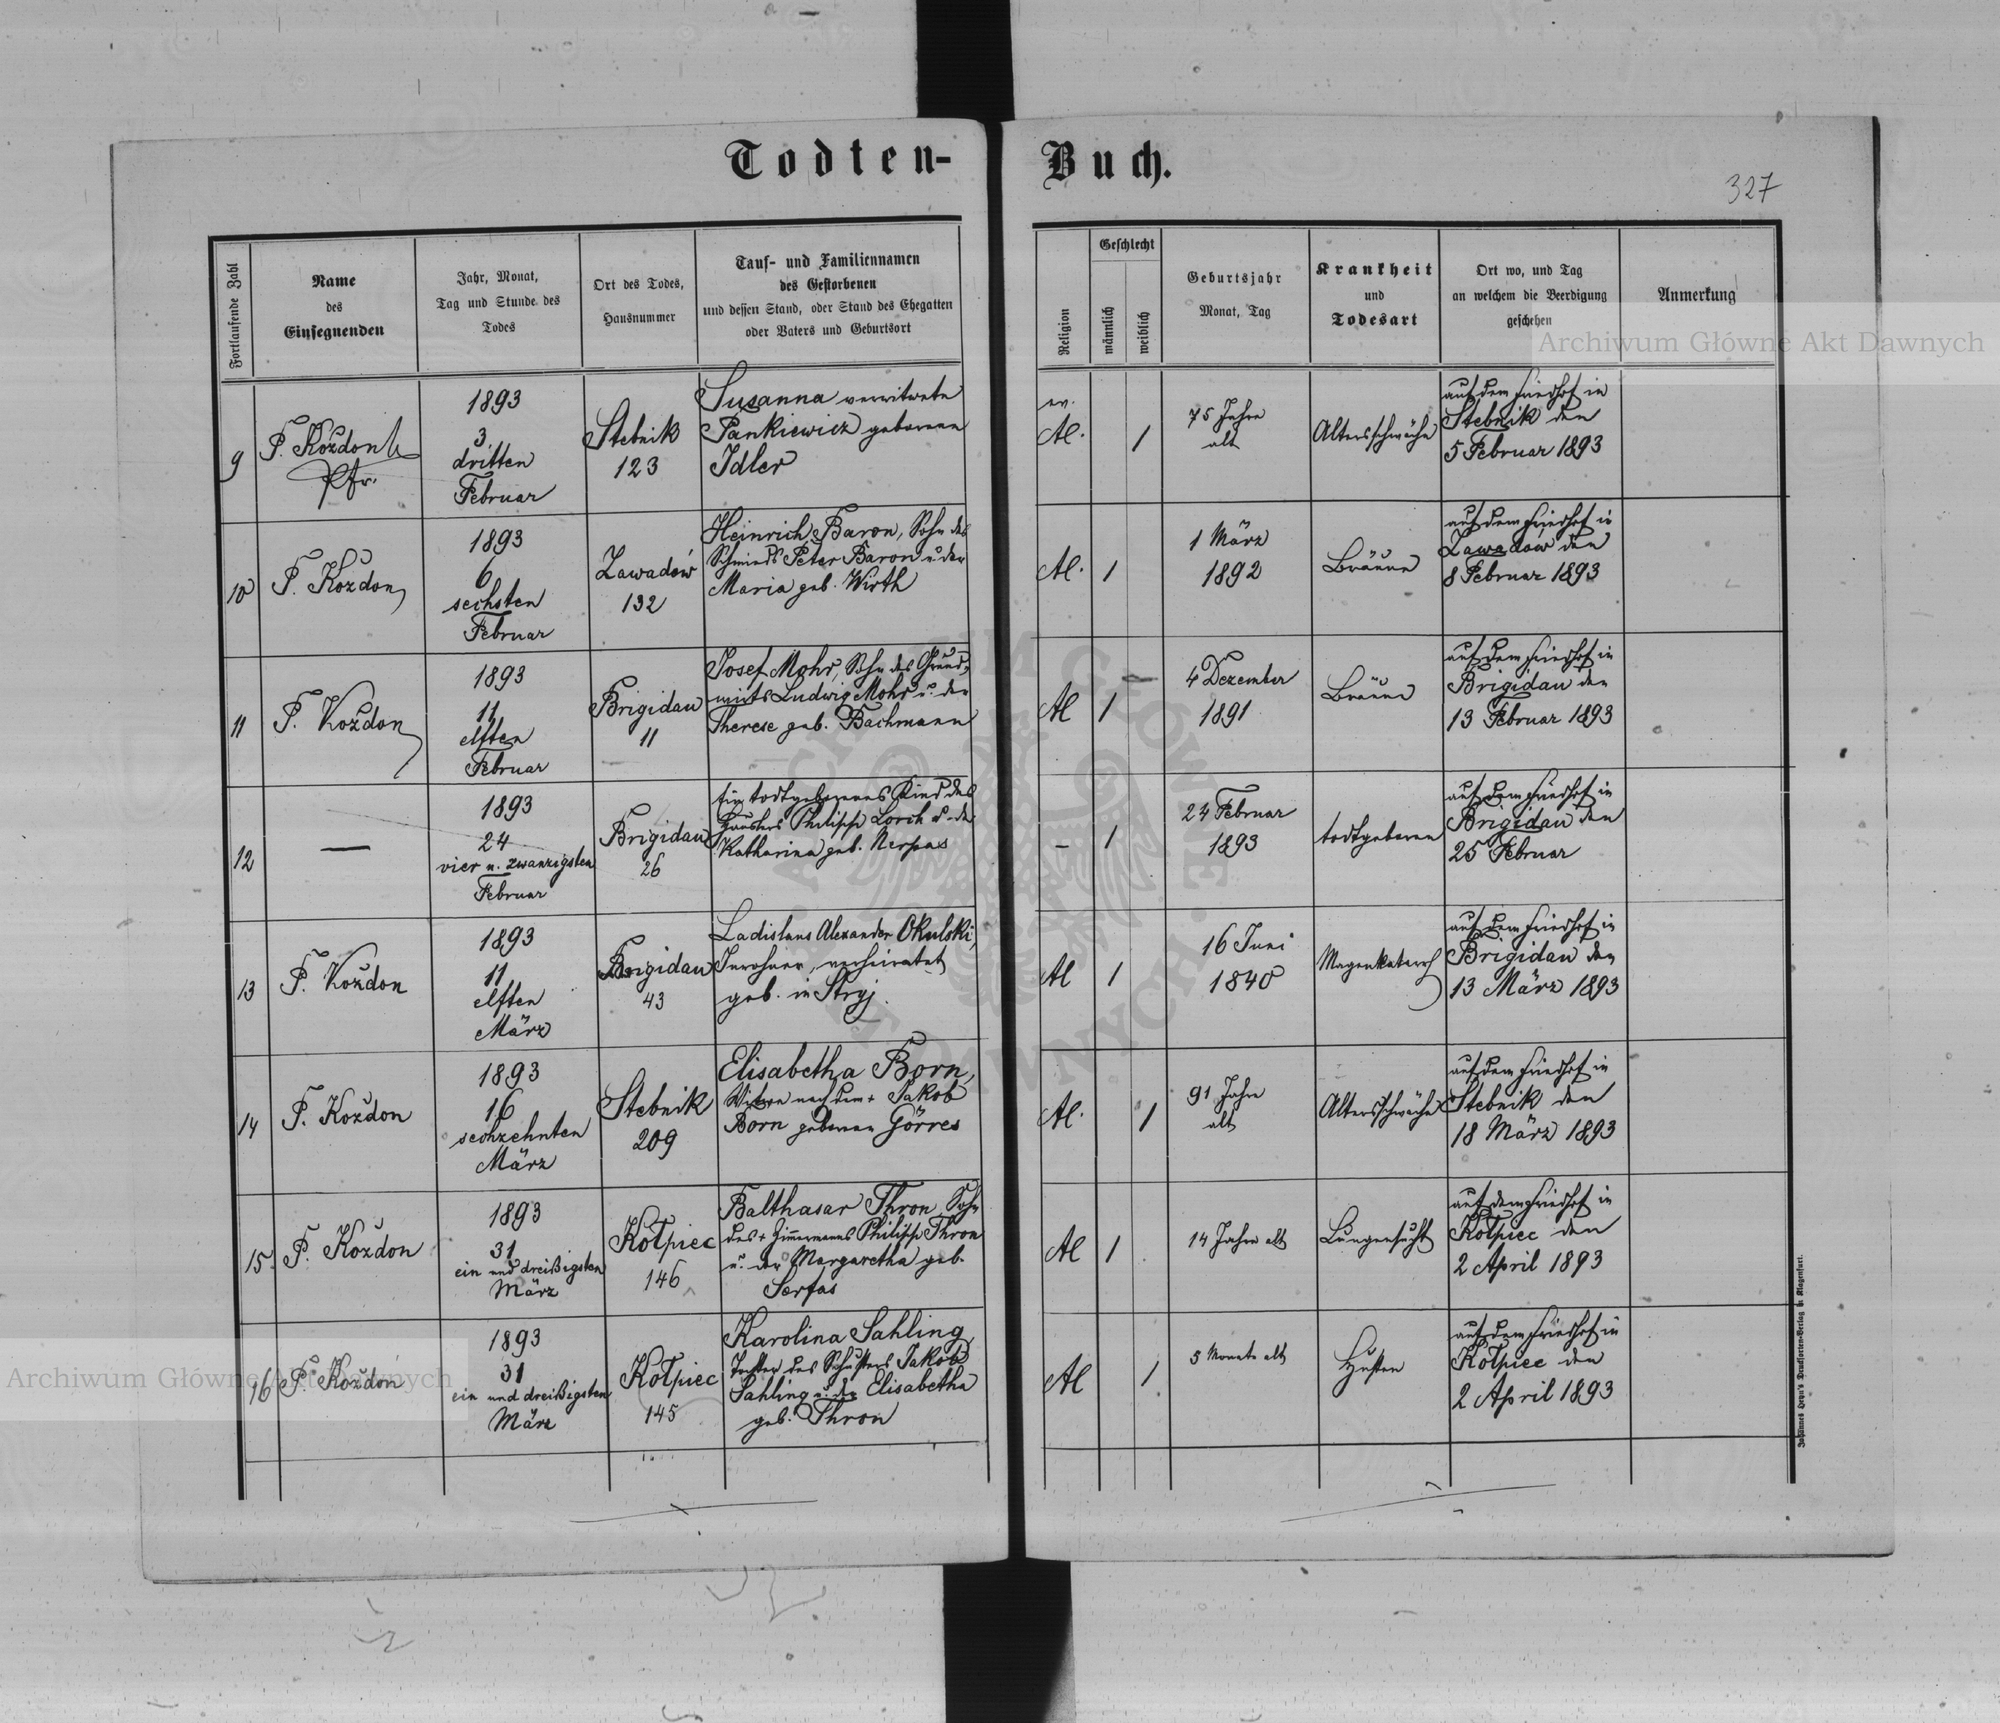 Todten-Buch.
327
Fortlaufende Zahl
Name
des
Einsegnenden
Jahr, Monat,
Tag und Stunde des
Todes
Ort des Todes,
Hausnummer
Tauf- und Familiennamen
des Gestorbenen
und dessen Stand, oder Stand des Ehegatten
oder Vaters und Geburtsort
Religion
Geschlecht
männlich
weiblich
Geburtsjahr
Monat, Tag
Krankheit
und
Todesart
Ort wo, und Tag
an welchem die Beerdigung
geschehen
Anmerkung
9
P. Kożdoń
Pfr.
1893
3.
dritten
Februar
Stebnik
123
Susanna verwitwete
Pankiewicz geborene
Idler
ev.
AC.
1
75 Jahre
alt
Altersschwäche
auf dem Friedhof in
Stebnik den
5 Februar 1893
10
P. Kożdon
1893
6
sechsten
Februar
Zawadów
132
Heinrich Baron, Sohn des
Schmieds Peter Baron u. der
Maria geb. Wirth
AC.
1
1 März
1892
Bräune
auf dem Friedhof in
Zawadow den
8 Februar 1893
11
P. Kożdon
1893
11
elften
Februar
Brigidau
11
Josef Mohr, Sohn des Grund-
wirts Ludwig Mohr u. der
Therese geb. Bachmann
AC
1
4 Dezember
1891
Bräune
auf dem Friedhof in
Brigidau den
13 Februar 1893
12
—
1893
24
vier u. zwanzigsten
Februar
Brigidau
26
Ein todtgeborenes Kind des
Philipp Lorch u. der
Katharina geb. Nerpas
–
1
24 Februar
1893
todtgeboren
auf dem Friedhof in
Brigidau den
25 Februar
13
P. Kożdon
1893
11
elften
März
Brigidau
43
Ladislaus Alexander Okulski,
Inwohner, verheiratet
geb. in Stryj.
AC
1
16 Juni
1840
Magenkatarrh
auf dem Friedhof in
Brigidau den
13 März 1893
14
P. Kożdon
1893
16
sechzehnten
März
Stebnik
209
Elisabetha Born,
Witwe nach dem + Jakob
Born geborene Görres
AC.
1
91 Jahre
alt
Altersschwäche
auf dem Friedhof in
Stebnik den
18 März 1893
15.
P. Kożdon
1893
31
ein und dreißigsten
März
Kołpiec
146
Balthasar Thron, Sohn
des + Zimmermanns Philipp Thron
u. der Margaretha geb.
Serfas
AC
1
14 Jahre alt
Lungensucht
auf dem Friedhof in
Kołpiec den
2 April 1893
16
P. Kożdon
1893
31
ein und dreißigsten
März
Kołpiec
145
Karolina Sahling,
Tochter des Schusters Jakob
Sahling u. der Elisabetha
geb. Thron
AC
1
5 Monate alt
Husten
auf dem Friedhof in
Kołpiec den
2 April 1893
Johannes Heyn's Drucksorten-Verlag in Klagenfurt.
Archiwum Główne Akt Dawnych
Archiwum Główne Akt Dawnych